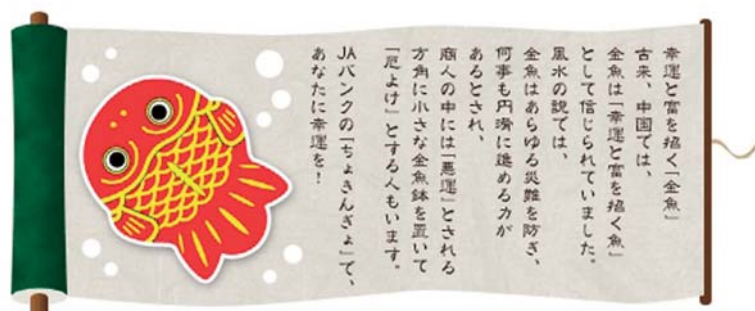 幸運と富を招く「金魚」
古来、中国では、
金魚は「幸運と富を招く魚」
として信じられていました。
風水の説では、
金魚はあらゆる災難を防ぎ、
何事も円滑に進める力が
あるとされ、
商人の中には「悪運」とされる
方角に小さな金魚鉢を置いて
「厄よけ」とする人もいます。
JAバンクの「ちょきんぎょ」で、
あなたに幸運を！